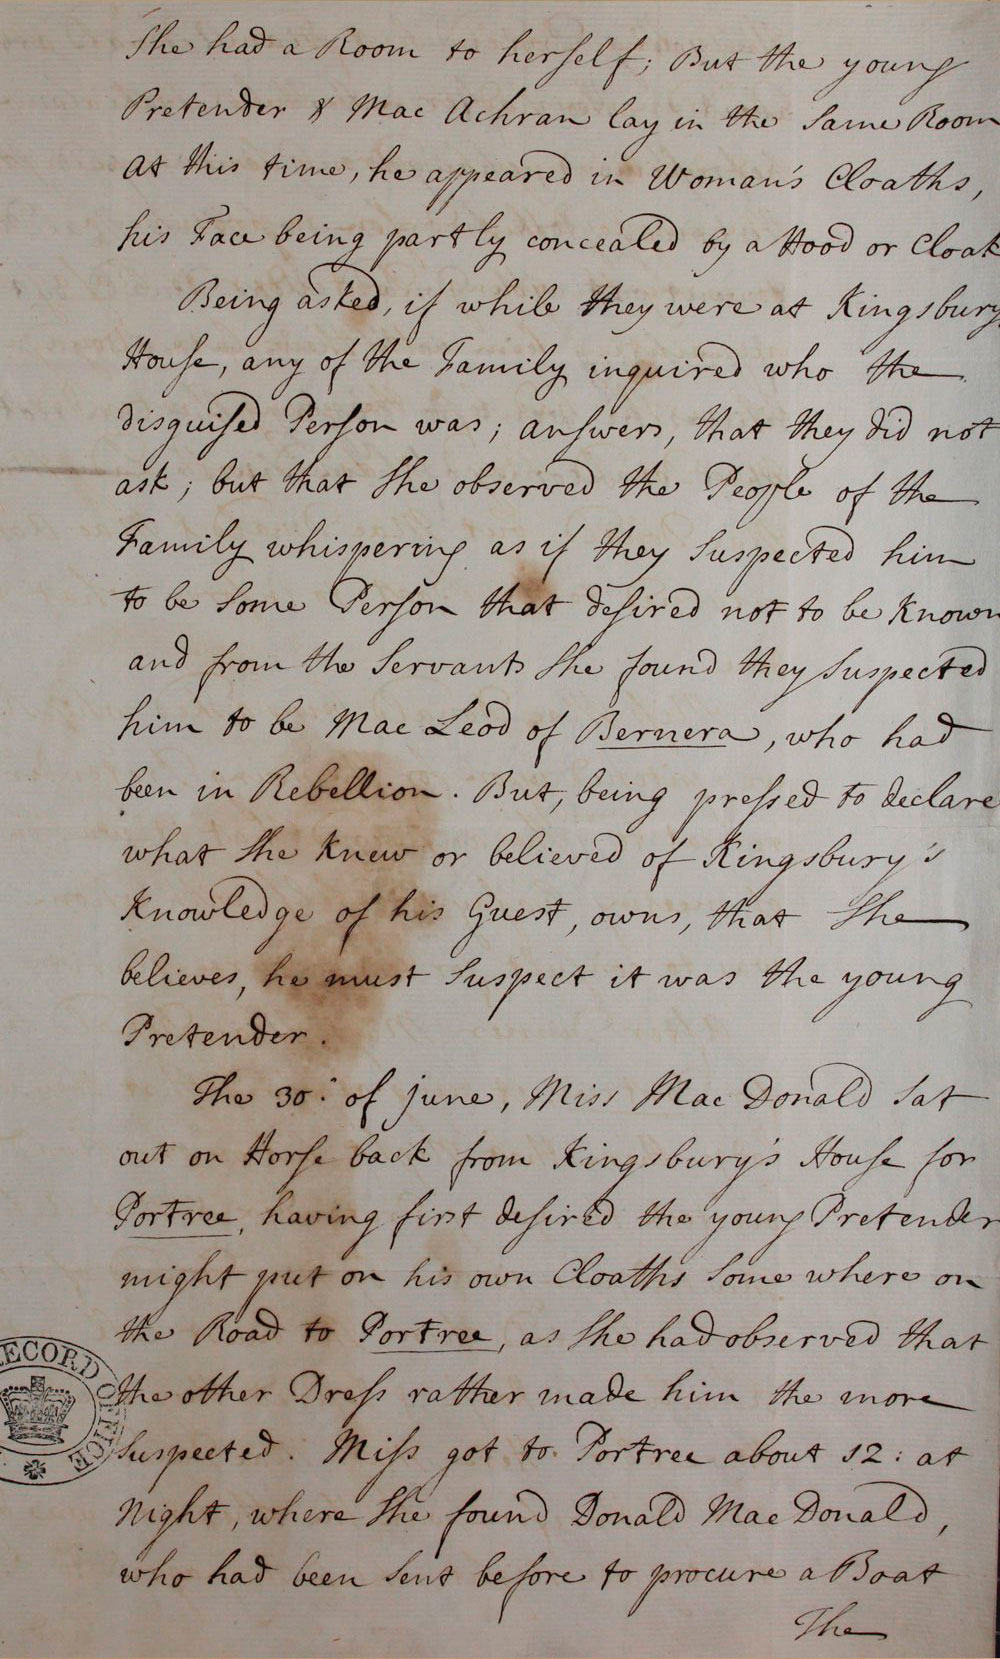 She had a Room to herself; But the young
Pretender & Mac Achran lay in the Same Room
At this time, he appeared in Woman's Cloaths,
his Face being partly concealed by a Hood or Cloak
Being asked, if while they were at Kingsbury
House, any of the Family inquired who the
disguised Person was; answers, that they did not
ask; but that She observed the People of the
Family whispering as if they Suspected him
to be Some Person that desired not to be Known
and from the Servants She found they Suspected
him to be Mac Leod of Bernera, who had
been in Rebellion. But, being pressed to declare
what She Knew or believed of Kingsbury's
Knowledge of his Guest, owns, that She
believes, he must Suspect it was the young
Pretender.
The 30: of june, Miss Mac Donald Sat
out on Horse back from Kingsbury's House for
Portree, having first desired the young Pretender
might put on his own Cloaths Some where on
the Road to Portree, as She had observed that
the other Dress rather made him the more
Suspected. Miss got to Portree about 12: at
Night, where She found Donald Mac Donald,
who had been Sent before to procure a Boat
The
RECORD OFFICE